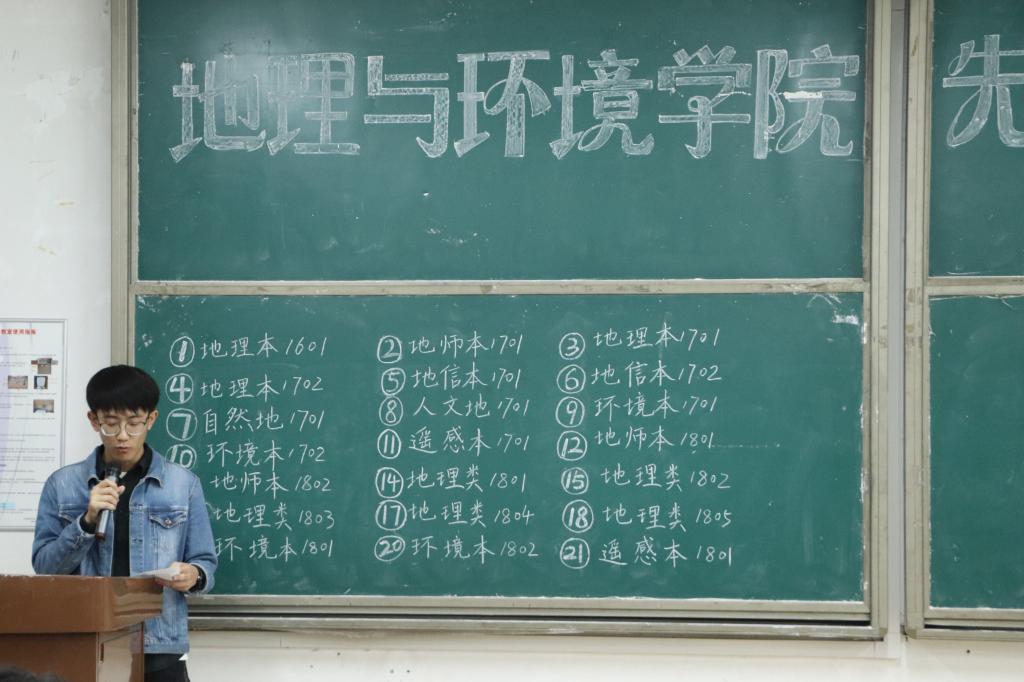 地理与环境学院
先
①地理本1601 ②地师本1701 ③地理本1701
④地理本1702 ⑤地信本1701 ⑥地信本1702
⑦自然地1701 ⑧人文地1701 ⑨环境本1701
⑩环境本1702 ⑪遥感本1701 ⑫地师本1801
地师本1802 ⑭地理类1801 ⑮地理类1802
地理类1803 ⑰地理类1804 ⑱地理类1805
环境本1801 ⑳环境本1802 ㉑遥感本1801